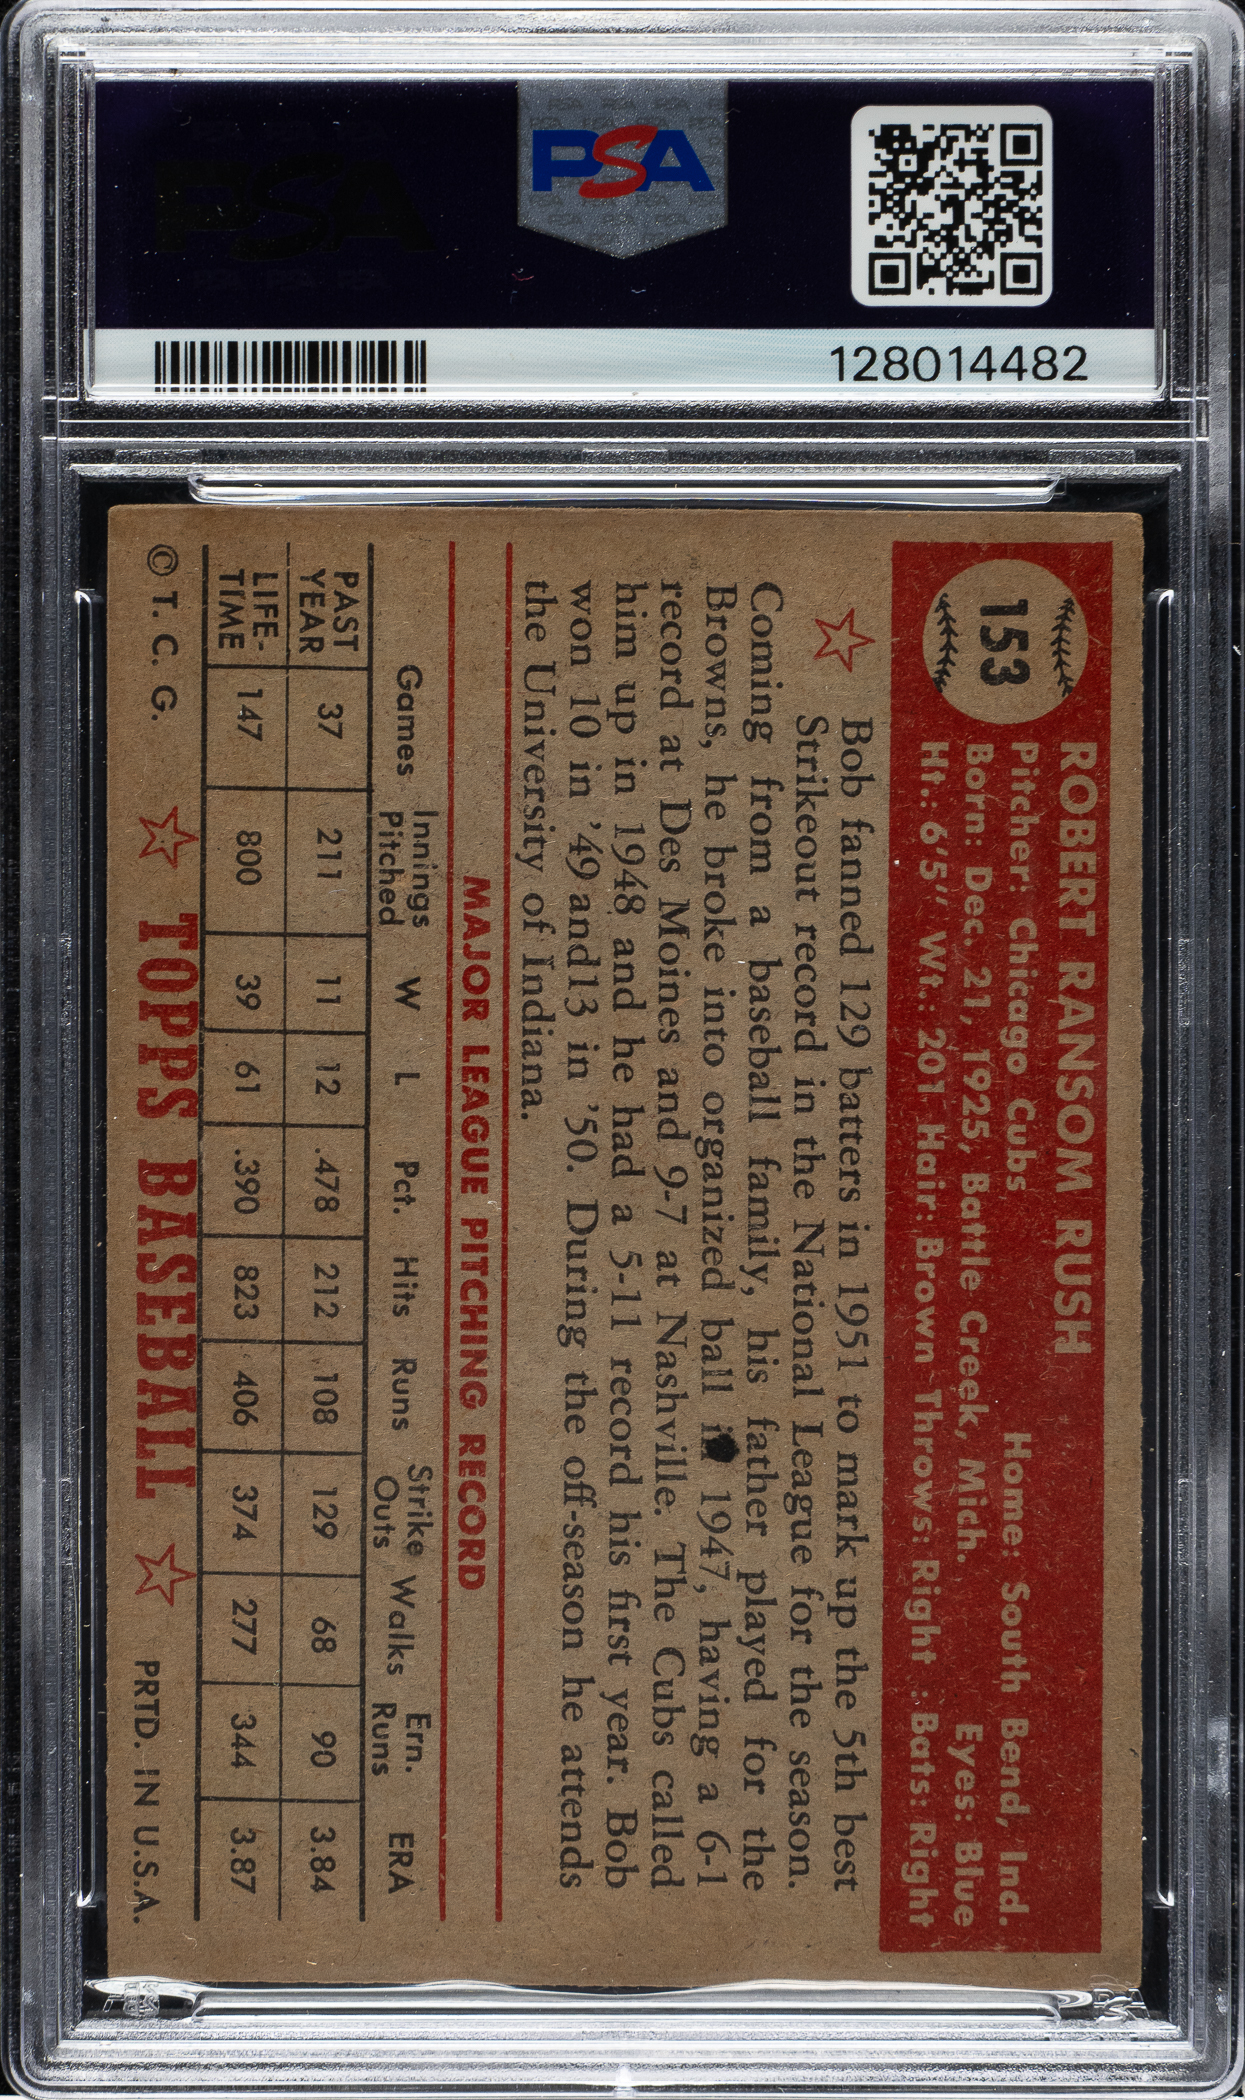 PSA
128014482
153
ROBERT RANSOM RUSH
Pitcher: Chicago Cubs Home: South Bend, Ind.
Born: Dec. 21, 1925, Battle Creek, Mich. Eyes: Blue
Ht.: 6'5" Wt.: 201 Hair: Brown Throws: Right Bats: Right
Bob fanned 129 batters in 1951 to mark up the 5th best
Strikeout record in the National League for the season.
Coming from a baseball family, his father played for the
Browns, he broke into organized ball in 1947, having a 6-1
record at Des Moines and 9-7 at Nashville. The Cubs called
him up in 1948 and he had a 5-11 record his first year. Bob
won 10 in '49 and13 in '50. During the off-season he attends
the University of Indiana.
MAJOR LEAGUE PITCHING RECORD
Games Innings Pitched W L Pct. Hits Runs Strike Outs Walks Ern. Runs ERA
PAST YEAR 37 211 11 12 .478 212 108 129 68 90 3.84
LIFE-TIME 147 800 39 61 .390 823 406 374 277 344 3.87
© T. C. G. TOPPS BASEBALL PRTD. IN U.S.A.